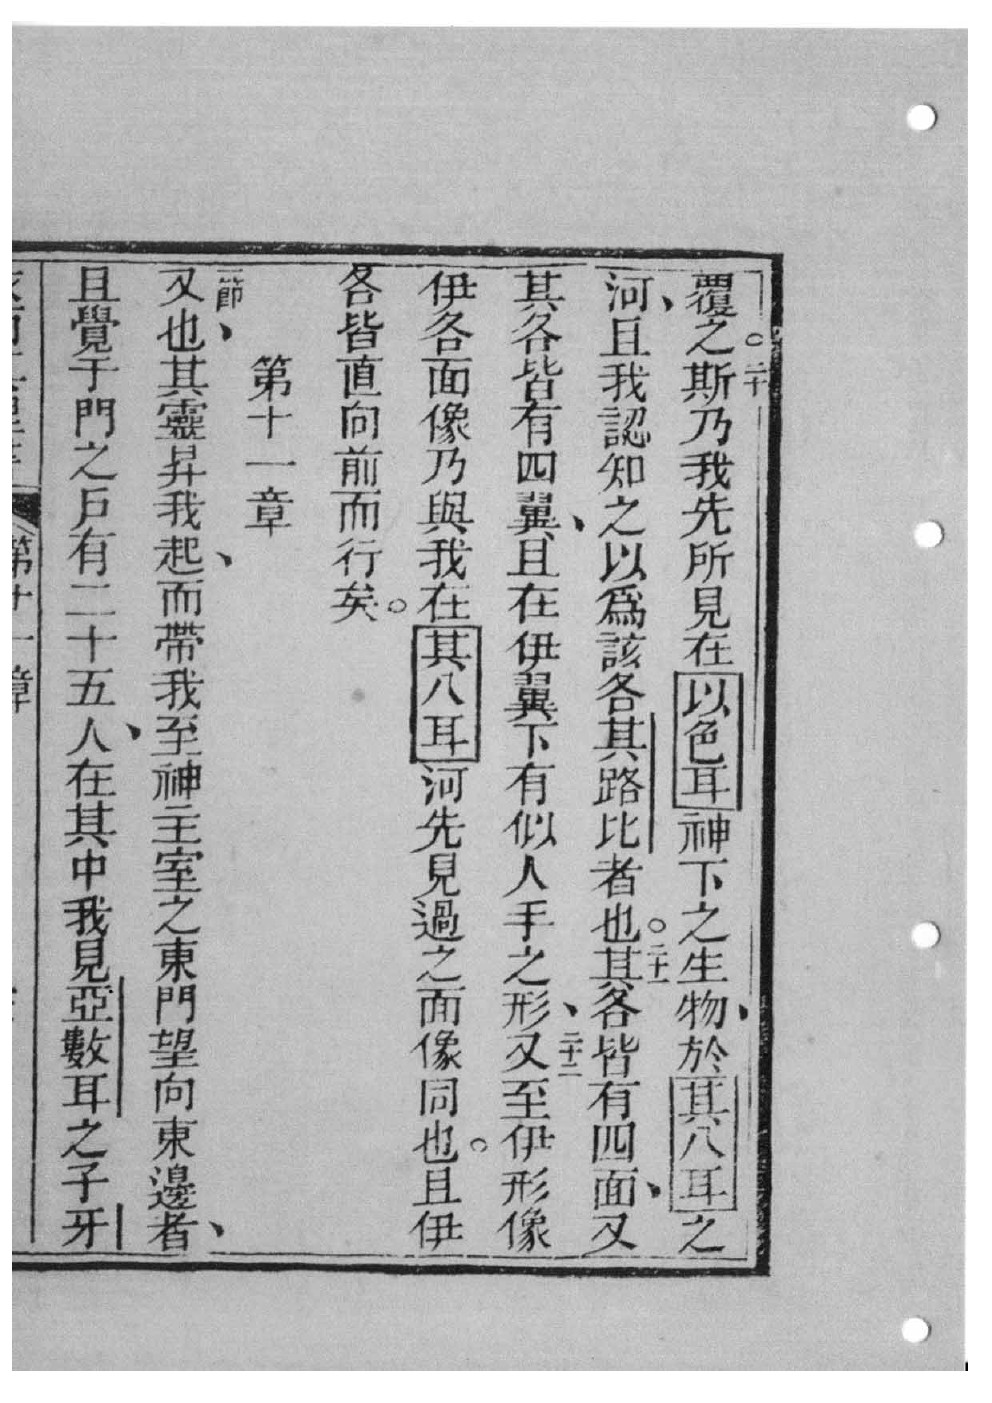 覆之。二十斯乃我先所見在以色耳神下之生物、於其八耳之
河、且我認知之以爲該各其路比者也。二十一其各皆有四面、又
其各皆有四翼、且在伊翼下有似人手之形、二十二又至伊形像
伊各面像乃與我在其八耳河先見過之面像同也。且伊
各皆直向前而行矣。
第十一章
一節、又也其靈昇我起、而帶我至神主室之東門望向東邊者、
且覺于門之戶有二十五人、在其中我見亞數耳之子牙
第十一章